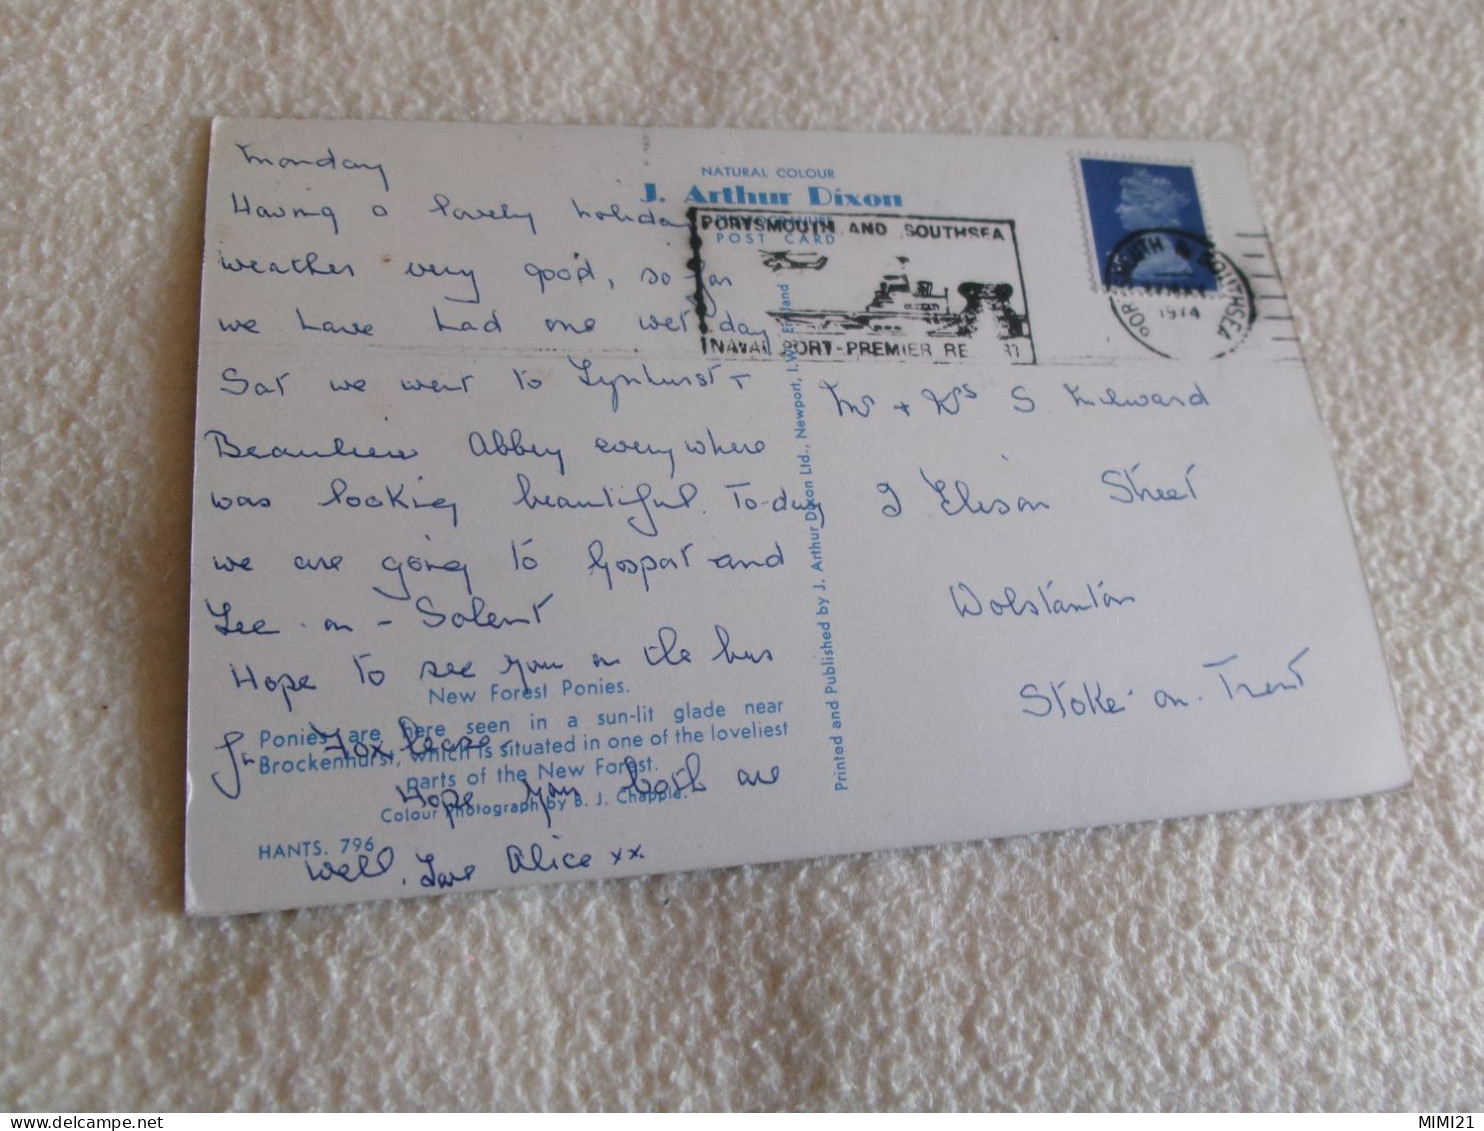 Monday
Having a lovely holiday
weather very good, so far
we have had one wet day
Sat we went to Lynhurst +
Beaulieu Abbey everywhere
was looking beautiful. To-day
we are going to Gosport and
Lee - on - Solent
Hope to see you on the bus
for Foxlease.
Hope you both are
Well. Love Alice xx.
New Forest Ponies.
Ponies are here seen in a sun-lit glade near
Brockenhurst, which is situated in one of the loveliest
parts of the New Forest.
Colour Photograph by B. J. Chapple.
HANTS. 796
NATURAL COLOUR
J. Arthur Dixon
PHOTOGRAVURE
POST CARD
Printed and Published by J. Arthur Dixon Ltd., Newport, I.W., England
PORTSMOUTH AND SOUTHSEA
NAVAL PORT-PREMIER RE RT
PORTSMOUTH & SOUTHSEA
MAY
1974
Mr + Mrs S Milward
Street
Wolstanton
Stoke-on-Trent
MIMI21